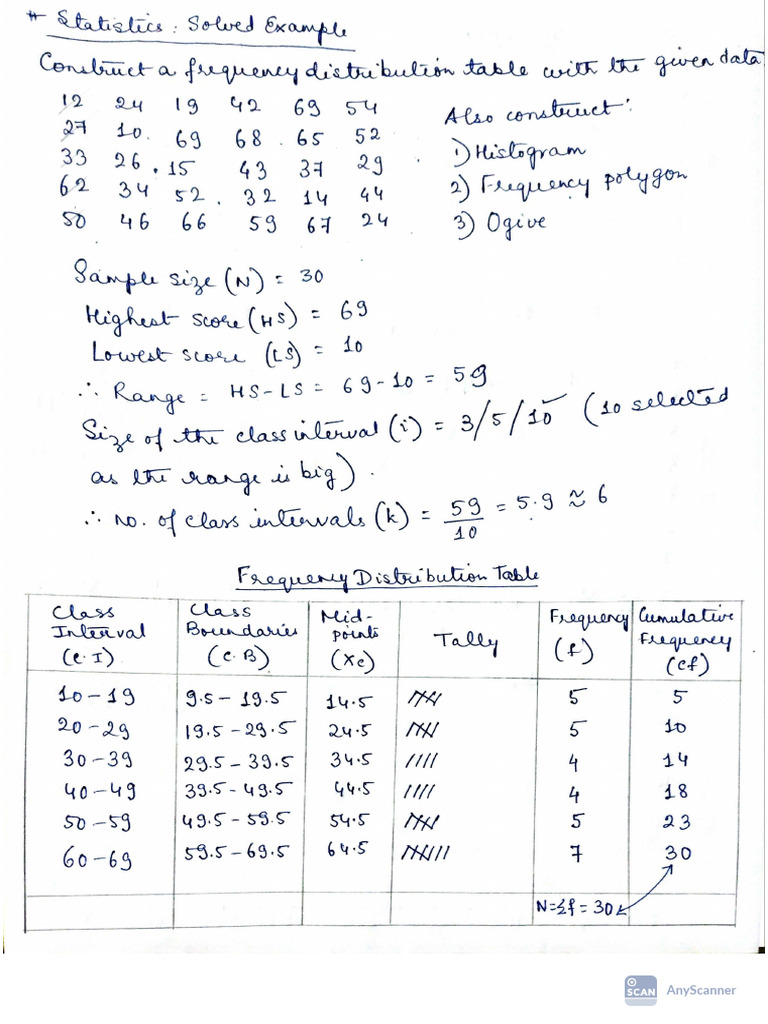 * Statistics : Solved Example
Construct a frequency distribution table with the given data.
12 24 19 42 69 54
27 10 69 68 65 52
33 26 15 43 37 29
62 34 52 32 14 44
50 46 66 59 67 24
Also construct:
1) Histogram
2) Frequency polygon
3) Ogive
Sample size (N) = 30
Highest score (HS) = 69
Lowest score (LS) = 10
∴ Range = HS-LS = 69-10 = 59
Size of the class interval (i) = 3/5/10✓ (10 selected
as the range is big).
∴ no. of class intervals (k) = 59/10 = 5.9 ≈ 6
Frequency Distribution Table
Class Interval (C.I) Class Boundaries (C.B) Mid-points (Xc) Tally Frequency (f) Cumulative Frequency (cf)
10-19 9.5-19.5 14.5 𝍸 5 5
20-29 19.5-29.5 24.5 𝍸 5 10
30-39 29.5-39.5 34.5 //// 4 14
40-49 39.5-49.5 44.5 //// 4 18
50-59 49.5-59.5 54.5 𝍸 5 23
60-69 59.5-69.5 64.5 𝍸// 7 30
N=Σf = 30
SCAN AnyScanner